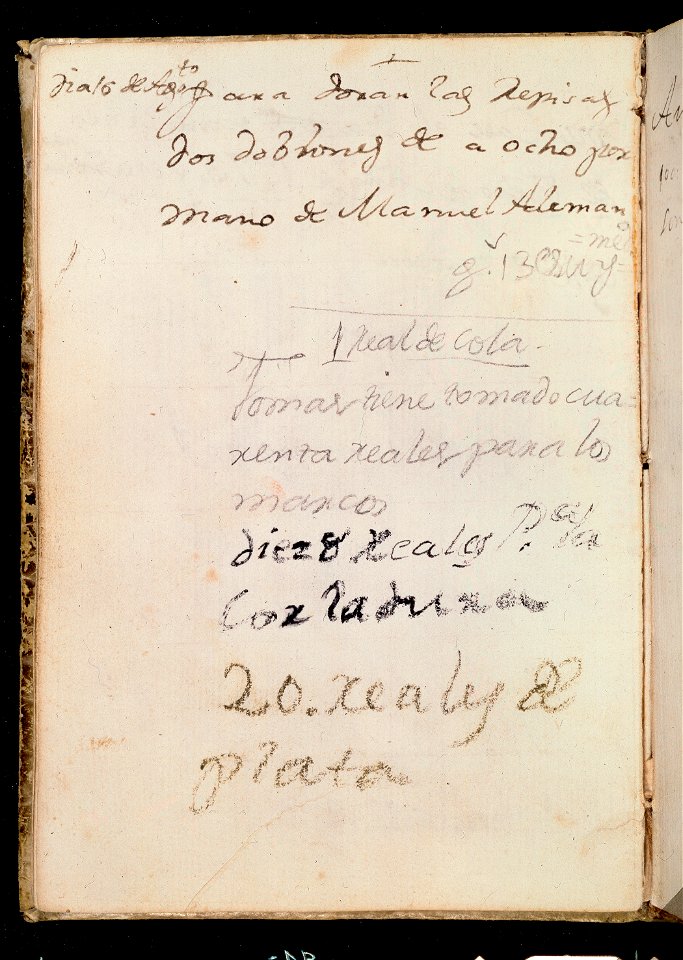 dia 16 de Ag.to para doran las repisas
dos doblones de a ocho por
mano de Manuel Aleman
1 real de cola.
Tomas tiene tomado cua=
renta reales para los
marcos
diez y 8 reales P.a la
cortadura
20. reales de
plata